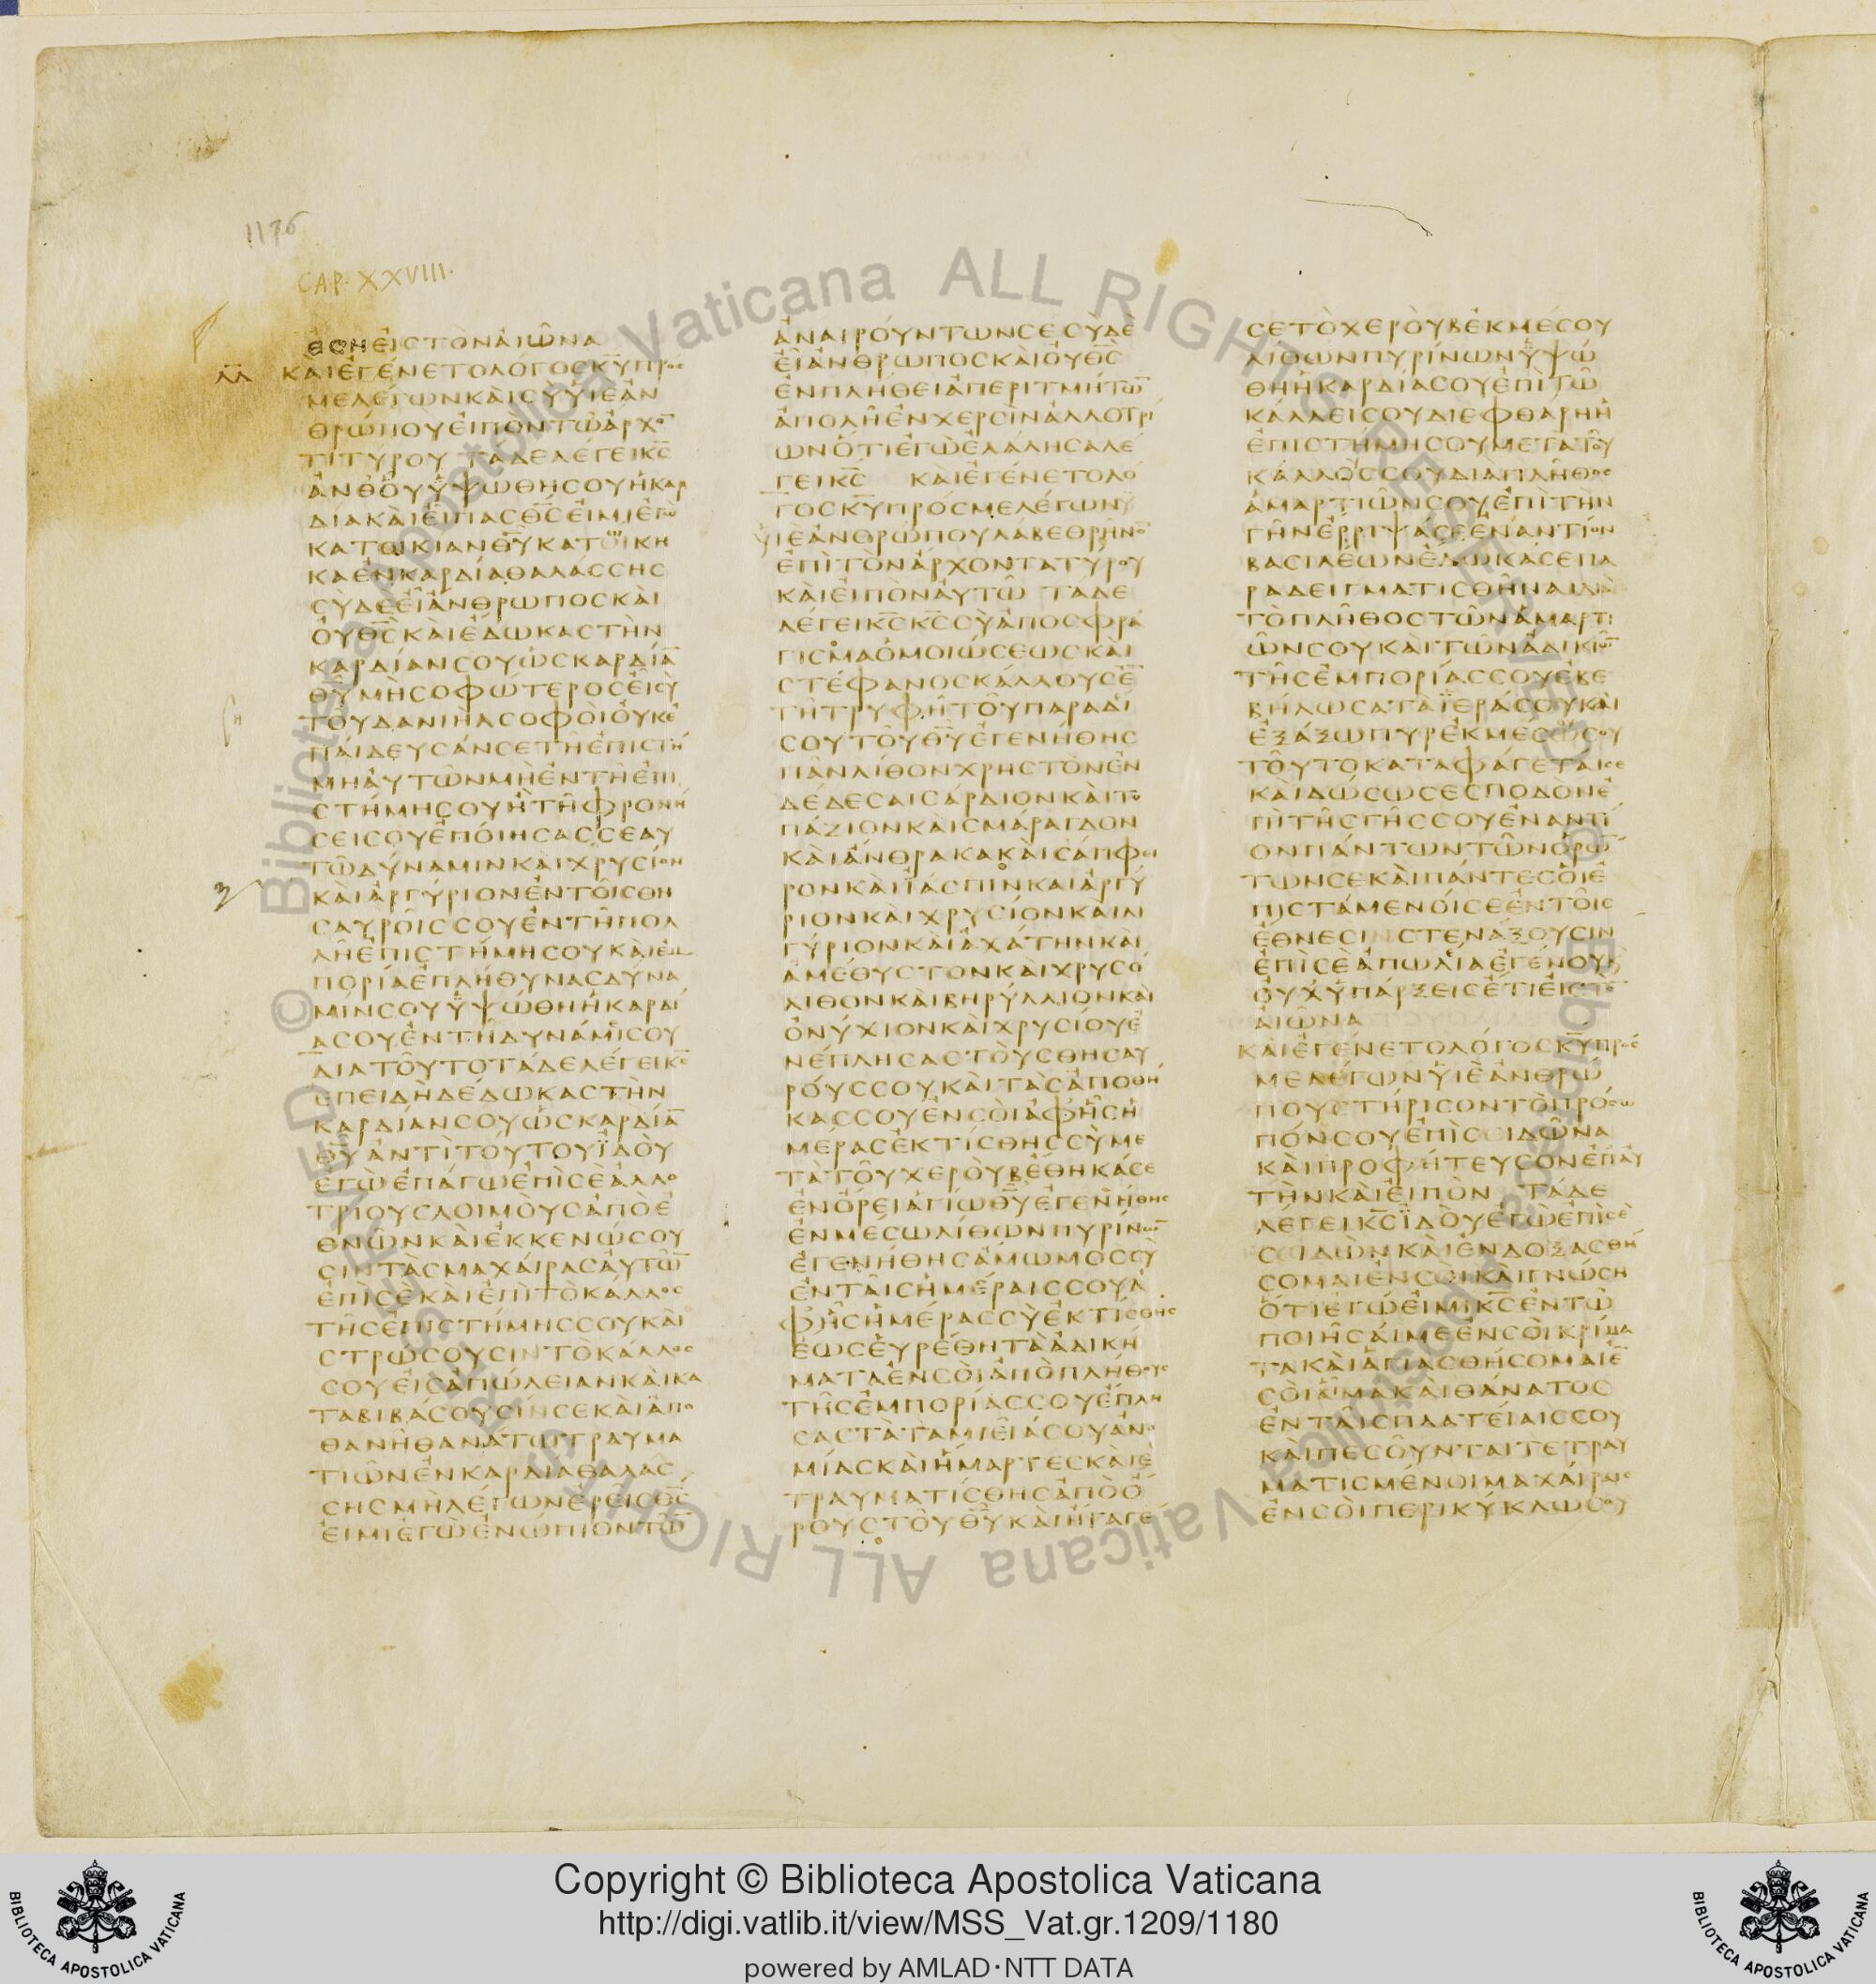 1176
CAP. XXVIII.
ΕϹΗΕΙϹΤΟΝΑΙΩΝΑ
ΚΑΙΕΓΕΝΕΤΟΛΟΓΟϹΚΥΠΡΟϹ
ΜΕΛΕΓΩΝΚΑΙϹΥΥΙΕΑΝ
ΘΡΩΠΟΥΕΙΠΟΝΤΩΑΡΧΟ̅
ΤΙΤΥΡΟΥ ΤΑΔΕΛΕΓΕΙΚϹ
ΑΝΘΟΥΥΨΩΘΗϹΟΥΗΚΑΡ
ΔΙΑΚΑΙΕΙΠΑϹΘϹΕΙΜΙΕΓΩ
ΚΑΤΟΙΚΙΑΝΘΥΚΑΤΩΚΗ
ΚΑΕΝΚΑΡΔΙΑΘΑΛΑϹϹΗϹ
ϹΥΔΕΕΙΑΝΘΡΩΠΟϹΚΑΙ
ΟΥΘϹΚΑΙΕΔΩΚΑϹΤΗΝ
ΚΑΡΔΙΑΝϹΟΥΩϹΚΑΡΔΙΑ̅
ΘΥΜΗϹΟΦΩΤΕΡΟϹΕΙϹΥ
ΤΟΥΔΑΝΙΗΛϹΟΦΟΙΟΥΚΕ
ΠΑΙΔΕΥϹΑΝϹΕΤΗΕΠΙϹΤΗ
ΜΗΑΥΤΩΝΜΗΕΝΤΗΕΠΙ
ϹΤΗΜΗϹΟΥΗΤΗΦΡΟΝΗ
ϹΕΙϹΟΥΕΠΟΙΗϹΑϹϹΕΑΥ
ΤΩΔΥΝΑΜΙΝΚΑΙΧΡΥϹΙΟΝ
ΚΑΙΑΡΓΥΡΙΟΝΕΝΤΟΙϹΘΗ
ϹΑΥΡΟΙϹϹΟΥΕΝΤΗΠΟΛ
ΛΗΕΠΙϹΤΗΜΗϹΟΥΚΑΙΕΜ
ΠΟΡΙΑΕΠΛΗΘΥΝΑϹΔΥΝΑ
ΜΙΝϹΟΥΥΨΩΘΗΗΚΑΡΔΙ
ΑϹΟΥΕΝΤΗΔΥΝΑΜΙϹΟΥ
ΔΙΑΤΟΥΤΟΤΑΔΕΛΕΓΕΙΚϹ
ΕΠΕΙΔΗΔΕΔΩΚΑϹΤΗΝ
ΚΑΡΔΙΑΝϹΟΥΩϹΚΑΡΔΙΑ̅
ΘΥΑΝΤΙΤΟΥΤΟΥΪΔΟΥ
ΕΓΩΕΠΑΓΩΕΠΙϹΕΑΛΛΟ
ΤΡΙΟΥϹΛΟΙΜΟΥϹΑΠΟΕ
ΘΝΩΝΚΑΙΕΚΚΕΝΩϹΟΥ
ϹΙΝΤΑϹΜΑΧΑΙΡΑϹΑΥΤΩ̅
ΕΠΙϹΕΚΑΙΕΠΙΤΟΚΑΛΛΟϹ
ΤΗϹΕΠΙϹΤΗΜΗϹϹΟΥΚΑΙ
ϹΤΡΩϹΟΥϹΙΝΤΟΚΑΛΛΟϹ
ϹΟΥΕΙϹΑΠΩΛΕΙΑΝΚΑΙΚΑ
ΤΑΒΙΒΑϹΟΥϹΙΝϹΕΚΑΙΑΠΟ
ΘΑΝΗΘΑΝΑΤΩΤΡΑΥΜΑ
ΤΙΩΝΕΝΚΑΡΔΙΑΘΑΛΑϹ
ϹΗϹΜΗΛΕΓΩΝΕΡΕΙϹΘϹ
ΕΙΜΙΕΓΩΕΝΩΠΙΟΝΤΩ̅
ΑΝΑΙΡΟΥΝΤΩΝϹΕϹΥΔΕ
ΕΙΑΝΘΡΩΠΟϹΚΑΙΟΥΘϹ
ΕΝΠΛΗΘΕΙΑΠΕΡΙΤΜΗΤΩ̅
ΑΠΟΛΗΕΝΧΕΡϹΙΝΑΛΛΟΤΡΙ
ΩΝΟΤΙΕΓΩΕΛΑΛΗϹΑΛΕ
ΓΕΙΚϹ ΚΑΙΕΓΕΝΕΤΟΛΟ
ΓΟϹΚΥΠΡΟϹΜΕΛΕΓΩΝ
ΥΙΕΑΝΘΡΩΠΟΥΛΑΒΕΘΡΗΝΟ̅
ΕΠΙΤΟΝΑΡΧΟΝΤΑΤΥΡΟΥ
ΚΑΙΕΙΠΟΝΑΥΤΩ ΤΑΔΕ
ΛΕΓΕΙΚϹΚϹϹΥΑΠΟϹΦΡΑ
ΓΙϹΜΑΟΜΟΙΩϹΕΩϹΚΑΙ
ϹΤΕΦΑΝΟϹΚΑΛΛΟΥϹΕ̅
ΤΗΤΡΥΦΗΤΟΥΠΑΡΑΔΙ
ϹΟΥΤΟΥΘΥΕΓΕΝΗΘΗϹ
ΠΑΝΛΙΘΟΝΧΡΗϹΤΟΝΕΝ
ΔΕΔΕϹΑΙϹΑΡΔΙΟΝΚΑΙΤΟ
ΠΑΖΙΟΝΚΑΙϹΜΑΡΑΓΔΟΝ
ΚΑΙΑΝΘΡΑΚΑΚΑΙϹΑΠΦΕΙ
ΡΟΝΚΑΙΪΑϹΠΙΝΚΑΙΑΡΓΥ
ΡΙΟΝΚΑΙΧΡΥϹΙΟΝΚΑΙΛΙ
ΓΥΡΙΟΝΚΑΙΑΧΑΤΗΝΚΑΙ
ΑΜΕΘΥϹΤΟΝΚΑΙΧΡΥϹΟ
ΛΙΘΟΝΚΑΙΒΗΡΥΛΛΙΟΝΚΑΙ
ΟΝΥΧΙΟΝΚΑΙΧΡΥϹΙΟΥΕ
ΝΕΠΛΗϹΑϹΤΟΥϹΘΗϹΑΥ
ΡΟΥϹϹΟΥΚΑΙΤΑϹΑΠΟΘΗ
ΚΑϹϹΟΥΕΝϹΟΙΑΦΗϹΗ
ΜΕΡΑϹΕΚΤΙϹΘΗϹϹΥΜΕ
ΤΑΤΟΥΧΕΡΟΥΒΕΘΗΚΑϹΕ
ΕΝΟΡΕΙΑΓΙΩΘΥΕΓΕΝΗΘΗϹ
ΕΝΜΕϹΩΛΙΘΩΝΠΥΡΙΝΩ̅
ΕΓΕΝΗΘΗϹΑΜΩΜΟϹϹΥ
ΕΝΤΑΙϹΗΜΕΡΑΙϹϹΟΥΑ
ΦΗϹΗΜΕΡΑϹϹΥΕΚΤΙϹΘΗϹ
ΕΩϹΕΥΡΕΘΗΤΑΑΔΙΚΗ
ΜΑΤΑΕΝϹΟΙΑΠΟΠΛΗΘΟΥϹ
ΤΗϹΕΜΠΟΡΙΑϹϹΟΥΕΠΛΗ
ϹΑϹΤΑΤΑΜΙΕΙΑϹΟΥΑΝΟ
ΜΙΑϹΚΑΙΗΜΑΡΤΕϹΚΑΙΕ
ΤΡΑΥΜΑΤΙϹΘΗϹΑΠΟΟ
ΡΟΥϹΤΟΥΘΥΚΑΙΗΓΑΓΕ
ϹΕΤΟΧΕΡΟΥΒΕΚΜΕϹΟΥ
ΛΙΘΩΝΠΥΡΙΝΩΝΥΨΩ
ΘΗΗΚΑΡΔΙΑϹΟΥΕΠΙΤΩ
ΚΑΛΛΕΙϹΟΥΔΙΕΦΘΑΡΗΗ
ΕΠΙϹΤΗΜΗϹΟΥΜΕΤΑΤΟΥ
ΚΑΛΛΟϹϹΟΥΔΙΑΠΛΗΘΟϹ
ΑΜΑΡΤΙΩΝϹΟΥΕΠΙΤΗΝ
ΓΗΝΕΡΡΙΨΑϹΕΕΝΑΝΤΙΟΝ
ΒΑϹΙΛΕΩΝΕΔΩΚΑϹΕΠΑ
ΡΑΔΕΙΓΜΑΤΙϹΘΗΝΑΙΔΙΑ
ΤΟΠΛΗΘΟϹΤΩΝΑΜΑΡΤΙ
ΩΝϹΟΥΚΑΙΤΩΝΑΔΙΚΙΩ̅
ΤΗϹΕΜΠΟΡΙΑϹϹΟΥΕΒΕ
ΒΗΛΩϹΑΤΑΪΕΡΑϹΟΥΚΑΙ
ΕΞΑΞΩΠΥΡΕΚΜΕϹΟΥϹΟΥ
ΤΟΥΤΟΚΑΤΑΦΑΓΕΤΑΙϹΕ
ΚΑΙΔΩϹΩϹΕϹΠΟΔΟΝΕ
ΠΙΤΗϹΓΗϹϹΟΥΕΝΑΝΤΙ
ΟΝΠΑΝΤΩΝΤΩΝΟΡΩ̅
ΤΩΝϹΕΚΑΙΠΑΝΤΕϹΟΙΕ
ΠΙϹΤΑΜΕΝΟΙϹΕΕΝΤΟΙϹ
ΕΘΝΕϹΙΝϹΤΕΝΑΞΟΥϹΙΝ
ΕΠΙϹΕΑΠΩΛΙΑΕΓΕΝΟΥ
ΟΥΧΥΠΑΡΞΕΙϹΕΤΙΕΙϹΤΟ̅
ΑΙΩΝΑ
ΚΑΙΕΓΕΝΕΤΟΛΟΓΟϹΚΥΠΡΟϹ
ΜΕΛΕΓΩΝΥΙΕΑΝΘΡΩ
ΠΟΥϹΤΗΡΙϹΟΝΤΟΠΡΟϹΩ
ΠΟΝϹΟΥΕΠΙϹΙΔΩΝΑ
ΚΑΙΠΡΟΦΗΤΕΥϹΟΝΕΠΑΥ
ΤΗΝΚΑΙΕΙΠΟΝ ΤΑΔΕ
ΛΕΓΕΙΚϹΪΔΟΥΕΓΩΕΠΙϹΕ
ϹΙΔΩΝΚΑΙΕΝΔΟΞΑϹΘΗ
ϹΟΜΑΙΕΝϹΟΙΚΑΙΓΝΩϹΗ
ΟΤΙΕΓΩΕΙΜΙΚϹΕΝΤΩ
ΠΟΙΗϹΑΙΜΕΕΝϹΟΙΚΡΙΜΑ
ΤΑΚΑΙΑΓΙΑϹΘΗϹΟΜΑΙΕ̅
ϹΟΙΑΙΜΑΚΑΙΘΑΝΑΤΟϹ
ΕΝΤΑΙϹΠΛΑΤΕΙΑΙϹϹΟΥ
ΚΑΙΠΕϹΟΥΝΤΑΙΤΕΤΡΑΥ
ΜΑΤΙϹΜΕΝΟΙΜΑΧΑΙΡΑΙϹ
ΕΝϹΟΙΠΕΡΙΚΥΚΛΩϹΟΥ
© Biblioteca Apostolica Vaticana ALL RIGHTS RESERVED
Copyright © Biblioteca Apostolica Vaticana
http://digi.vatlib.it/view/MSS_Vat.gr.1209/1180
powered by AMLAD·NTT DATA
BIBLIOTECA APOSTOLICA VATICANA
BIBLIOTECA APOSTOLICA VATICANA